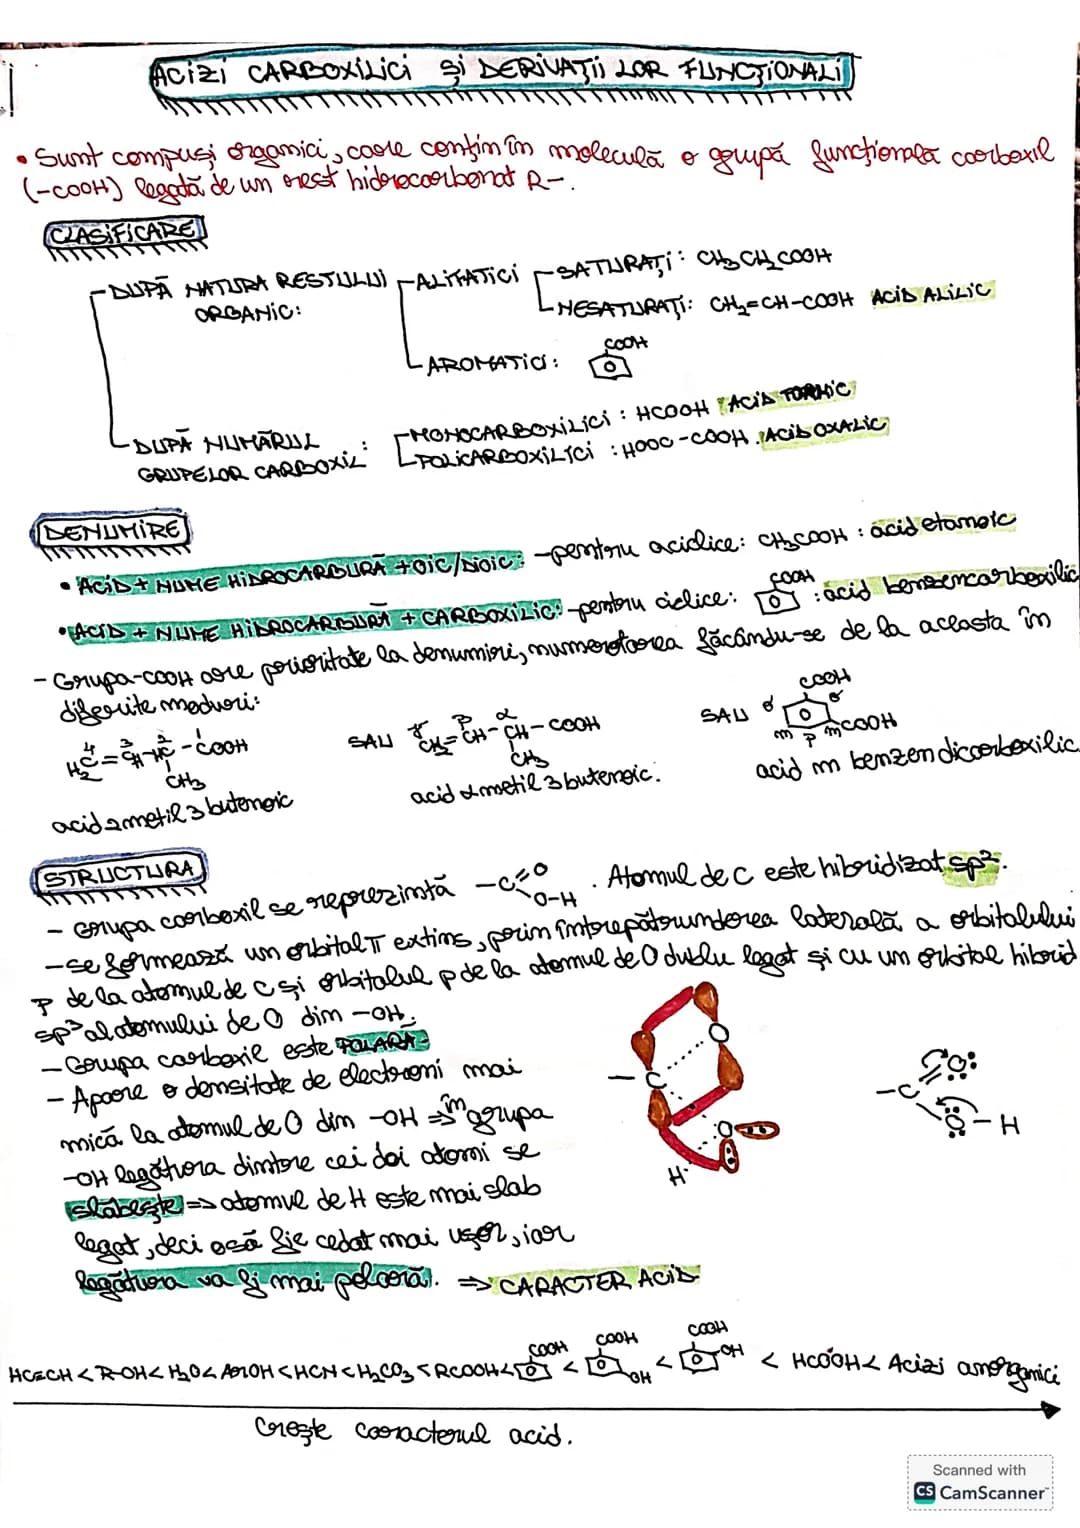 ACIZI CARBOXILICI ȘI DERIVAȚII LOR FUNCȚIONALI
• Sunt compuși organici, care conțin în moleculă o grupă funcțională carboxil
(-COOH) legată de un rest hidrocarbonat R-.
CLASIFICARE
-DUPĂ NATURA RESTULUI ORGANIC:
-ALIFATICI
-SATURAȚI: CH3CH2COOH
-NESATURAȚI: CH2=CH-COOH ACID ALILIC
-AROMATICI: COOH
-DUPĂ NUMĂRUL GRUPELOR CARBOXIL:
-MONOCARBOXILICI: HCOOH ACID FORMIC
-POLICARBOXILICI: HOOC-COOH ACID OXALIC
DENUMIRE
• ACID + NUME HIDROCARBURĂ + OIC/DIOIC: -pentru aciclice: CH3COOH: acid etanoic
• ACID + NUME HIDROCARBURĂ + CARBOXILIC: -pentru ciclice: COOH : acid benzencarboxilic
- Grupa -COOH are prioritate la denumiri, numerotarea făcându-se de la aceasta în
diferite moduri:
4 3 2 1
H2C=CH-HC-COOH
CH3
acid 2 metil 3 butenoic
SAU γ β α
CH2=CH-CH-COOH
CH3
acid α metil 3 butenoic.
SAU COOH
o o
m p m COOH
acid m benzendicarboxilic
STRUCTURA
- Grupa carboxil se reprezintă -C=O O-H . Atomul de C este hibridizat sp2.
-se formează un orbital π extins, prin întrepătrunderea laterală a orbitalului
p de la atomul de C și orbitalul p de la atomul de O dublu legat și cu un orbital hibrid
sp3 al atomului de O din -OH.
- Grupa carboxil este POLARĂ
- Apare o densitate de electroni mai
mică la atomul de O din -OH => în grupa
-OH legătura dintre cei doi atomi se
slăbește => atomul de H este mai slab
legat, deci o să fie cedat mai ușor, iar
legătura va fi mai polară. => CARACTER ACID
- C O O H
-C O: O - H
HC≡CH < R-OH < H2O < ArOH < HCN < H2CO3 < RCOOH < COOH < COOH OH < COOH OH < HCOOH < Acizi anorganici
Crește caracterul acid.
Scanned with
CS CamScanner